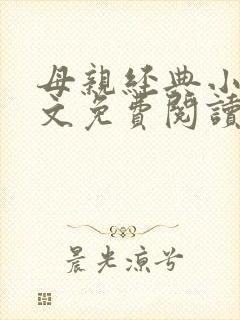 母親經典小
文免費閱讀
晨光涼兮